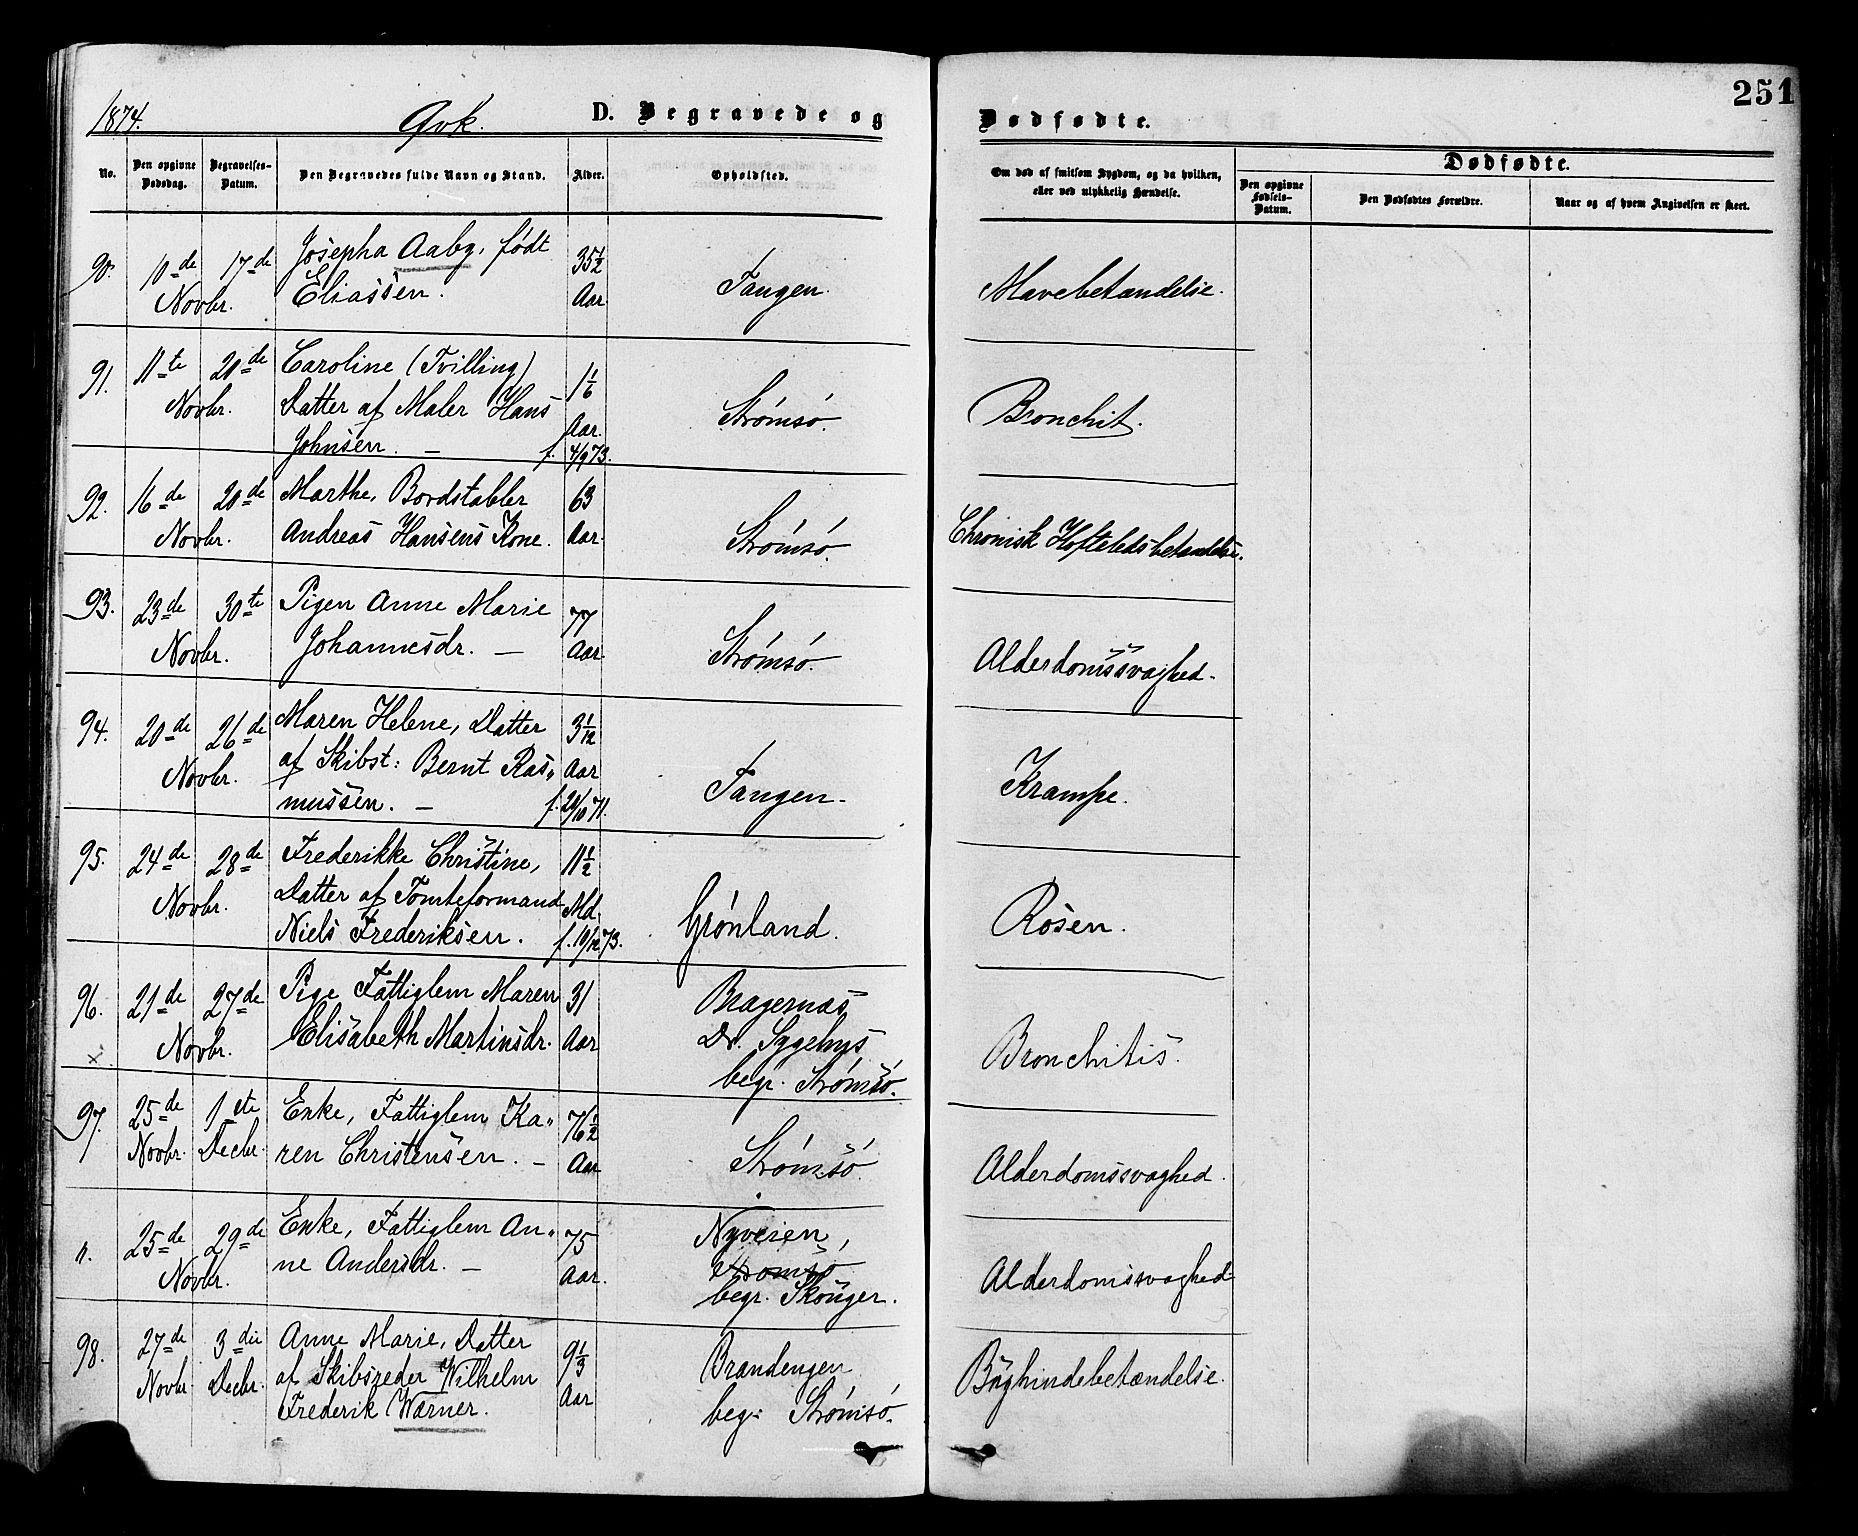 251
1874. Qvk. D. Begravede og Dødfødte.
No. Den opgivne Dødsdag. Begravelses-Datum. Den Begravedes fulde Navn og Stand. Alder. Opholdsted. Om død af smitsom Sygdom, og da hvilken, eller ved ulykkelig Hændelse. Dødfødte.
Den opgivne Fødsels-Datum. Den Dødfødtes Forældre. Naar og af hvem Angivelsen er skeet.
90. 10de 17de Josepha Aaby, født 35½
Novbr. Eliassen. Aar Tangen. Mavebetændelse.
91. 11te 20de Caroline (Tvilling) 1 1/6
Novbr. Datter af Maler Hans Aar. Strømsø. Bronchit.
Johnsen. — f. 4/9 73.
92. 16de 20de Marthe, Bordstabler 63
Novbr. Andreas Hansens Kone. Aar. Strømsø. Chronisk Hofteledsbetændelse.
93. 23de 30te Pigen Anne Marie 77
Novbr. Johannesdr. — Aar Strømsø. Alderdomssvaghed.
94. 20de 26de Maren Helene, Datter 3 1/12
Novbr. af Skibst: Bernt Ras- Aar Tangen. Krampe.
mussen. — f. 20/10 71.
95. 24de 28de Frederikke Christine, 11½
Novbr. Datter af Tomteformand Md. Grønland. Rosen.
Niels Frederiksen. f. 10/12 73.
96. 21de 27de Pige Fattiglem Maren 31 Bragernæs
× Novbr. Elisabeth Martinsdr. Aar Dr. Sygehus Bronchitis.
begr. Strømsø.
97. 25de 1ste Enke, Fattiglem Ka- 76½
Novbr. Decbr. ren Christensen. — Aar Strømsø. Alderdomssvaghed.
". 25de 29de Enke, Fattiglem An- 75 Nyveien,
Novbr. ne Andersdr. — Aar. Strømsø Alderdomssvaghed
begr. Skouger.
98. 27de 3die Anne Marie, Datter 9 1/3
Novbr. Decbr. af Skibsreder Wilhelm Aar Brandengen Bughindebetændelse.
Frederik Wærner. begr. Strømsø.